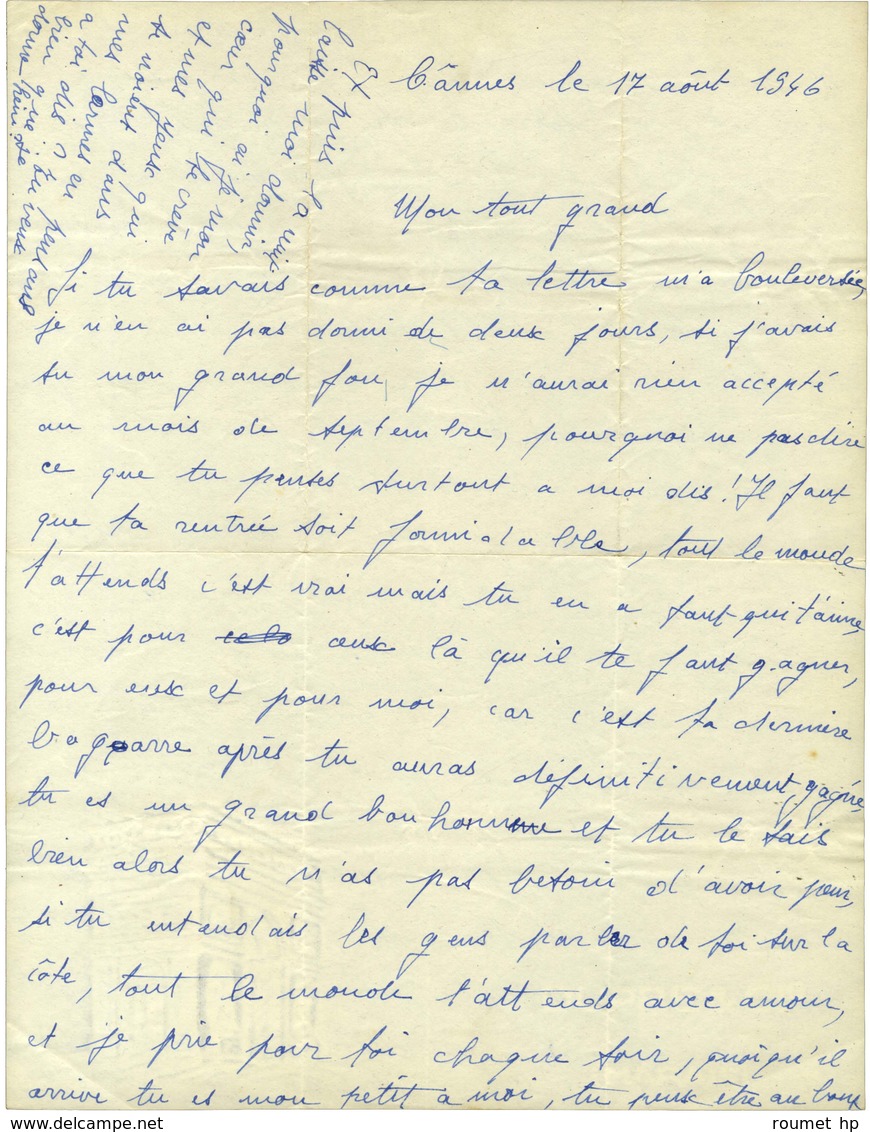 Cânnes le 17 août 1946
Mon tout grand
Si tu savais comme ta lettre m'a bouleversée,
je n'en ai pas dormi de deux jours, si j'avais
su mon grand fou, je n'aurai rien accepté
au mois de septembre, pourquoi ne pas dire
ce que tu penses surtout a moi dis! Il faut
que ta rentrée soit formidable, tout le monde
t'attends c'est vrai mais tu en a tant qui t'aime,
c'est pour cela ceux là qu'il te faut gagner,
pour eux et pour moi, car c'est ta dernière
bagarre après tu auras définitivement gagné,
tu es un grand bonhomme et tu le sais
bien alors tu n'as pas besoin d'avoir peur,
si tu entendais les gens parler de toi sur la
côte, tout le monde t'attends avec amour,
et je prie pour toi chaque soir, quoiqu'il
arrive tu es mon petit a moi, tu peux être au bout
Et puis la nuit
laisse moi dormir
pourquoi ai je mon
cœur qui se crève
et mes yeux qui
se noient dans
mes larmes
a toi dis
bien que tu veux